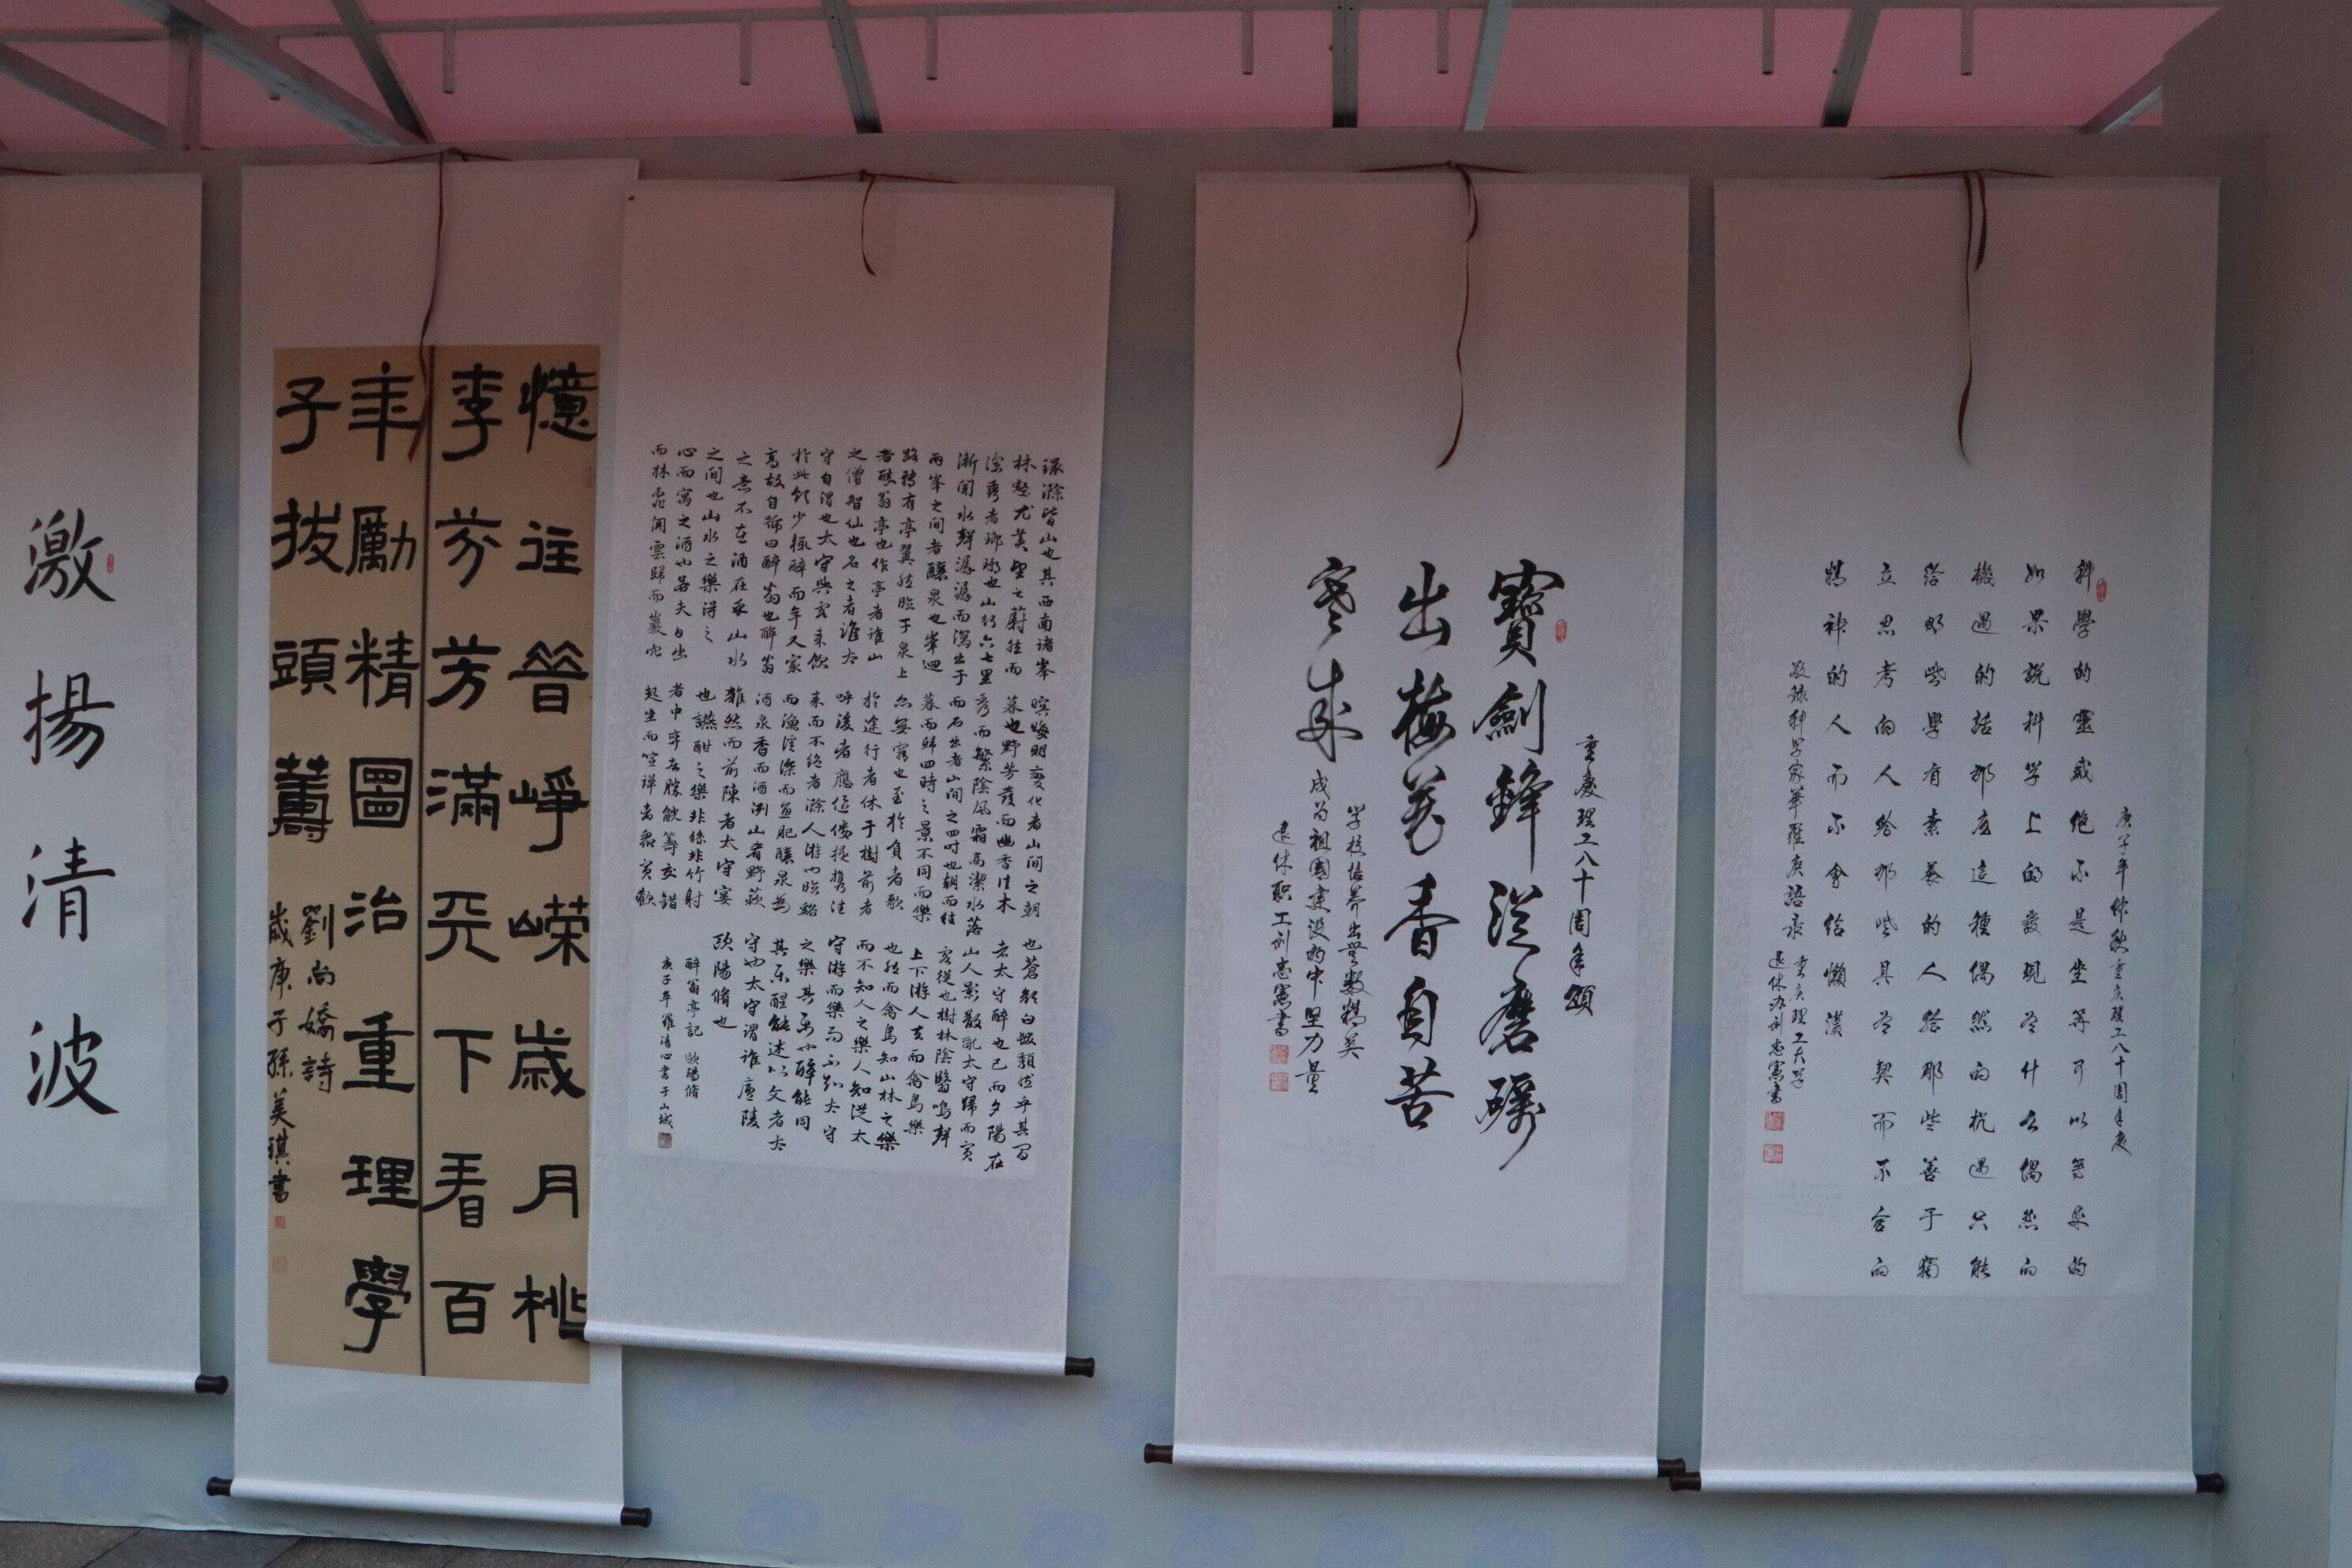 庚子年仲秋重庆理工八十周年庆
科學的靈感绝不是坐等可以等来的
如果说科学上的發现有什么偶然的
機遇的話那应這種偶然的机遇只能
给那些學有素養的人给那些善于獨
立思考的人给那些具有契而不舍的
精神的人而不會给懒漢
敬録科学家華羅庚語录
重庆理工大学
退休办刘忠憲書
重慶理工八十周年頌
寶劍鋒從磨礪
出梅花香自苦
寒来
学校培养出無數精英
成为祖國建设的中坚力量
退休职工刘忠憲書
環滁皆山也其西南诸峯
林壑尤美望之蔚然而
深秀者瑯琊也山行六七里
漸闻水聲潺潺而瀉出于
两峯之间者釀泉也峯迴
路转有亭翼然临于泉上
者醉翁亭也作亭者谁山
之僧智仙也名之者谁太
守自谓也太守與客来饮
於此饮少辄醉而年又最
高故自號曰醉翁也醉翁
之意不在酒在乎山水
之间也山水之樂得之
心而寓之酒也若夫日出
而林霏開雲歸而巖穴
暝晦明變化者山间之朝
暮也野芳發而幽香佳木
秀而繁陰風霜高潔水落
而石出者山间之四时也朝而往
暮而歸四時之景不同而樂
亦無窮也至於負者歌
於途行者休于樹前者
呼後者應伛偻提携往
来而不绝者滁人游也临谿
而漁溪深而魚肥釀泉為
酒泉香而酒洌山肴野蔌
雜然而前陳者太守宴
也讌酣之樂非絲非竹射
者中弈者勝觥籌交錯
起坐而喧譁者衆賓歡
也蒼颜白髮頹然乎其间
者太守醉也已而夕陽在
山人影散亂太守歸而賓
客從也樹林陰翳鸣聲
上下游人去而禽鸟樂
也然而禽鸟知山林之樂
而不知人之樂人知從太
守游而樂而不知太守
之樂其樂也醉能同
其乐醒能述以文者太
守也太守谓谁廬陵
欧陽脩也
醉翁亭記 歐陽脩
庚子年羅清心書于山城
憶往昔崢嶸歲月桃
李芬芳滿天下看百
年勵精圖治重理學
子拔頭籌
劉尚嬌詩
歲庚子孫美琪書
激揚清波